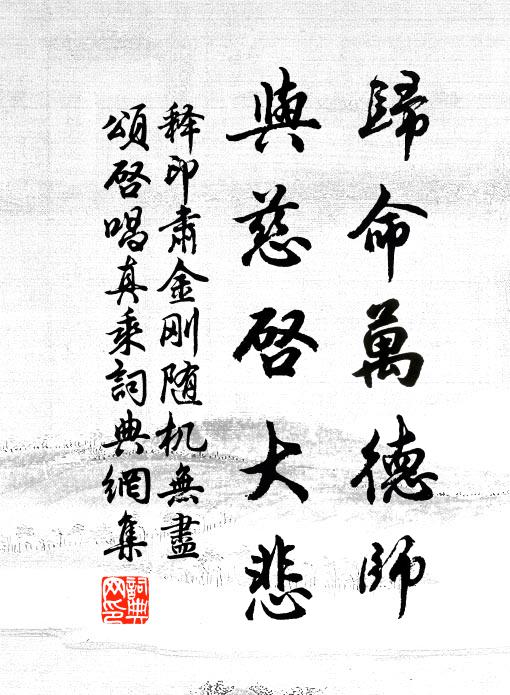 歸命萬德師
與慈啓大悲
釋印肅金刚随机無盡
頌啓唱真乘詞典網集
詞典网印